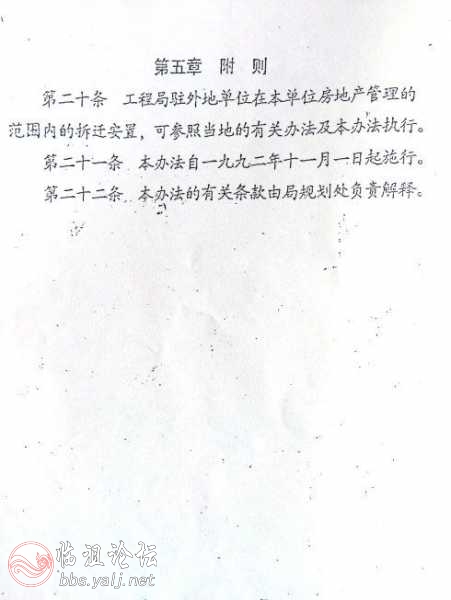 第五章 附 则
第二十条 工程局驻外地单位在本单位房地产管理的
范围内的拆迁安置，可参照当地的有关办法及本办法执行。
第二十一条 本办法自一九九二年十一月一日起施行。
第二十二条 本办法的有关条款由局规划处负责解释。
临沮论坛
bbs.yalj.net